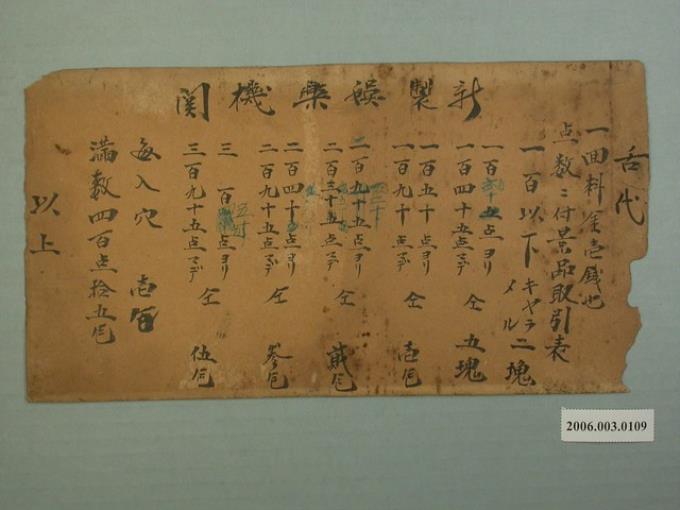 舌代
一回料金壱銭也
点数ニ付景品取引表
新製娯楽機関
一百以下 キャラメル 二塊
一百 十五点ヨリ
一百四十五点マデ 仝 五塊
一百五十点ヨリ
一百九十五点マデ 仝 壱包
二百 点ヨリ
二百三十五点マデ 仝 貳包
二百四十点ヨリ
二百九十五点マデ 仝 参包
三百 点ヨリ
三百九十五点マデ 仝 伍包
毎入穴 壱百
満数四百点拾五包
以上
2006.003.0109